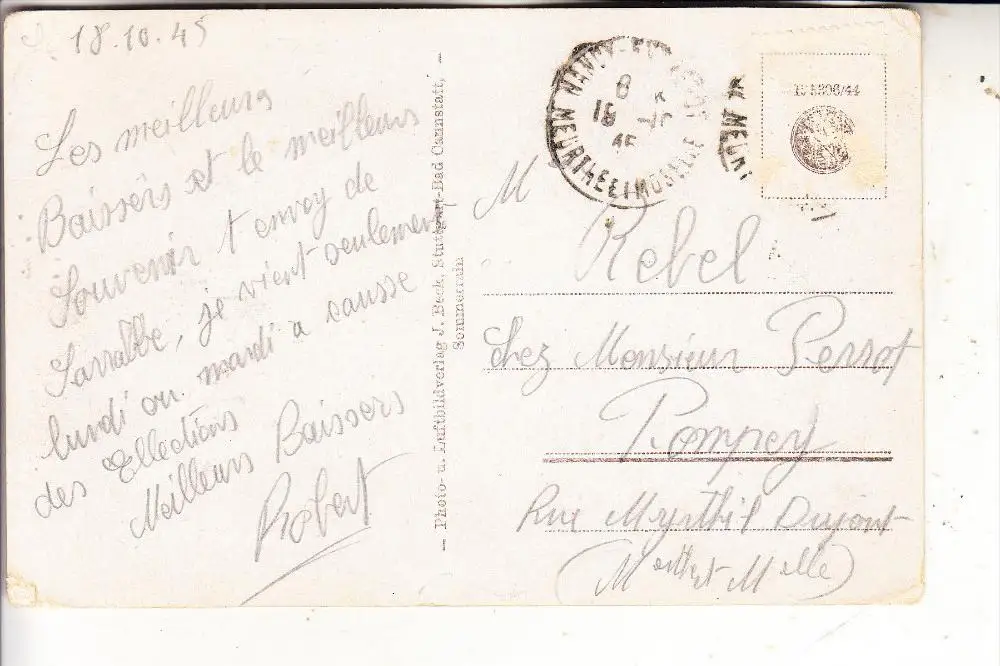 18.10.45
Les meilleurs
Baissers et le meilleurs
Souvenir t envoy de
Sarralbe, je vient seulement
lundi ou mardi a causse
des Ellections
Meilleurs Baissers
Robert
— Photo- u. Luftbildverlag J. Beck, Stuttgart-Bad Cannstatt, —
Sommerrain
NANCY
MEURTHE ET MOSELLE
18 -10
45
M
Rebel
chez Monsieur Perrot
Pompey
Rue Myrthil Dujont